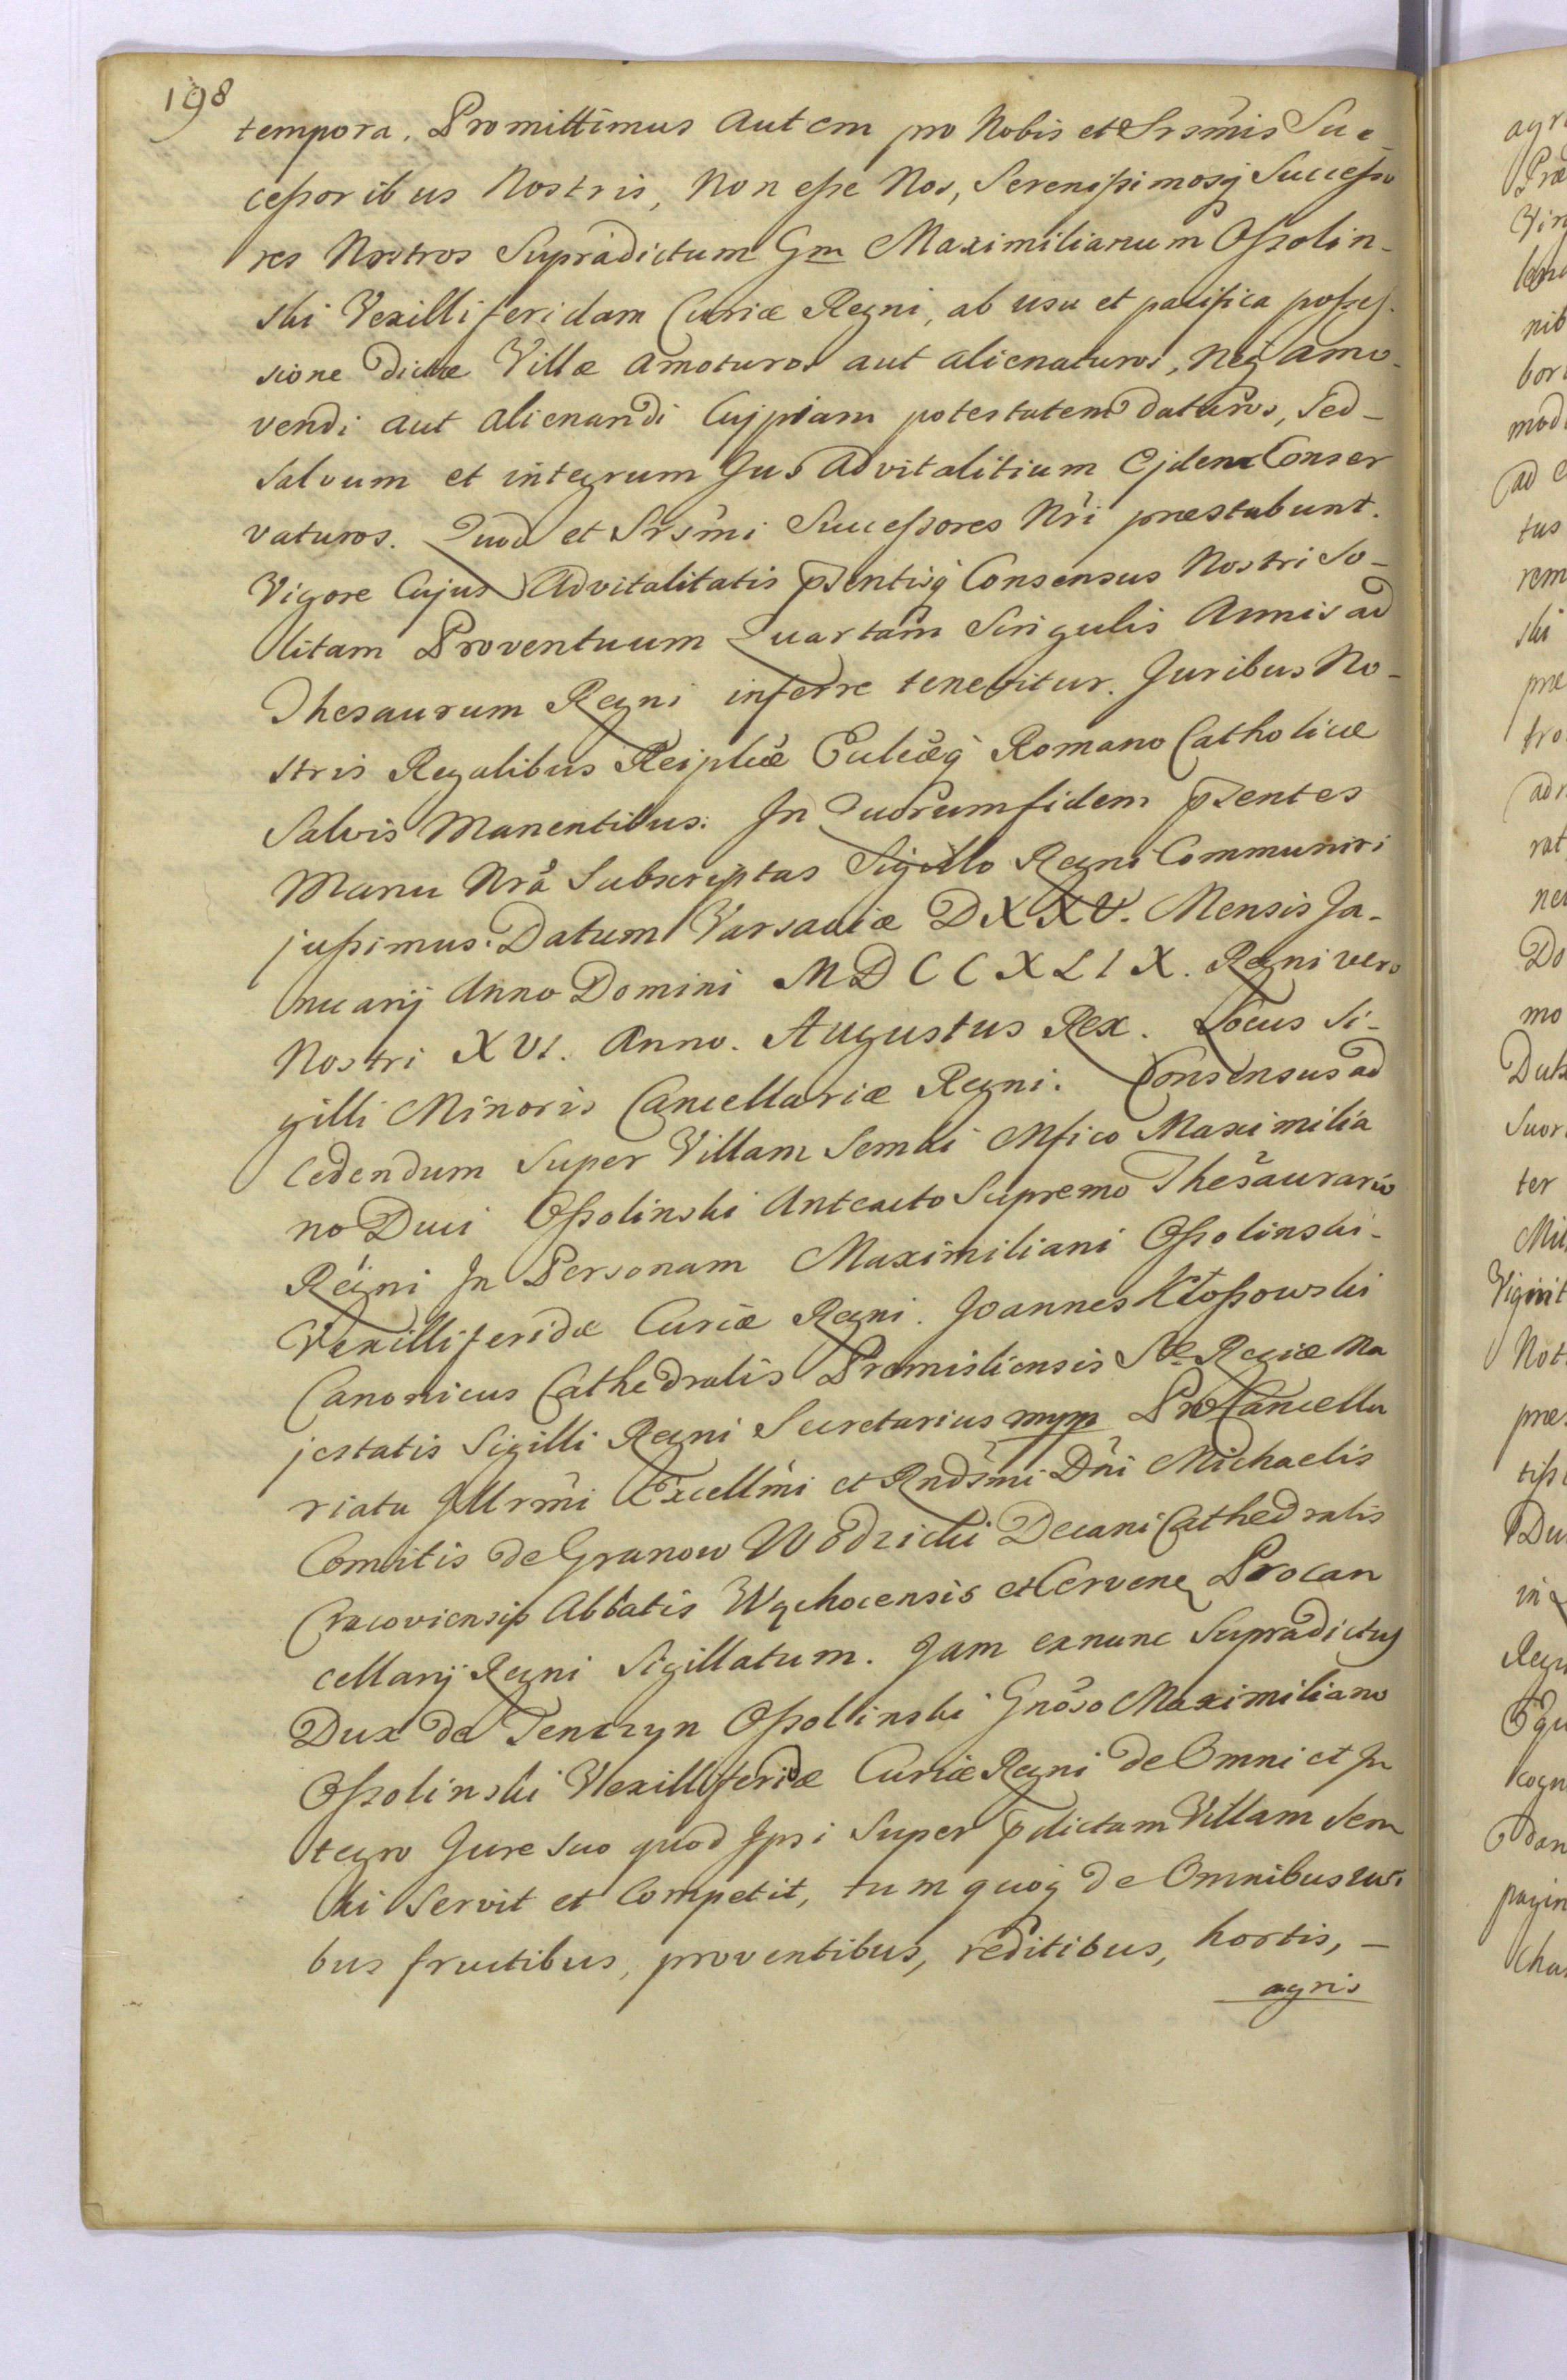 198
tempora. Promittimus autem pro Nobis et Srsmis Suc-
ceßoribus Nostris, Non eße Nos, Serenißimosq Succeßo
res Nostros Supradictum Gm Maximilianum Oßolin-
ski Vexilliferidam Curiæ Regni, ab usu et pacifica poßes-
sione dictæ Villæ amoturos aut alienaturos, Neq amo-
vendi aut alienandi Cujpiam potestatem daturos, Sed-
Salvum et integrum Jus Advitalitium Ejdem Conser
vaturos. Quod et Srsmi Succeßores Nri præstabunt.
Vigore Cujus Advitalitatis pzentisq Consensus Nostri So-
litam Proventuum Quartam Singulis Annis ad
Thesaurum Regni inferre tenebitur. Juribus No-
stris Regalibus Reiplicæ Ecclicæq Romano Catholicæ
Salvis Manentibus. In Quorum fidem pzentes
Manu Nrâ Subscriptas Sigillo Regni Communiri
jußimus. Datum Varsaviæ D XXV. Mensis Ja-
nuarij Anno Domini MDCCXLIX. Regni vero
Nostri XVI. Anno. Augustus Rex. Locus Si-
gilli Minoris Cancellariæ Regni. Consensus ad
Cedendum Super Villam Semki Mfico Maximilia
no Duci Oßolinski Anteacto Supremo Thesaurario
Regni In Personam Maximiliani Oßolinski-
Vexilliferidæ Curiæ Regni. Joannes Kłoßowski
Canonicus Cathedralis Premisliensis Sæ Regiæ Ma
jestatis Sigilli Regni Secretarius mpp ProCancella
riatu Jllrmi Excellmi et Rndsmi Dni Michaelis
Comitis de Granow Wodzicki Decani Cathedralis
Cracoviensis Abbatis Wąchocensis et Cervene Procan
cellarij Regni Sigillatum. Jam exnunc Supradictus
Dux de Tenczyn Oßolinski Gnoso Maximiliano
Oßolinski Vexilliferidæ Curiæ Regni de Omni et In
tegro Jure Suo quod Ipsi Super pdictam Villam Sem
ki Servit et Competit, tum quoq de Omnibus
bus fructibus, proventibus, reditibus, hortis, -
agris